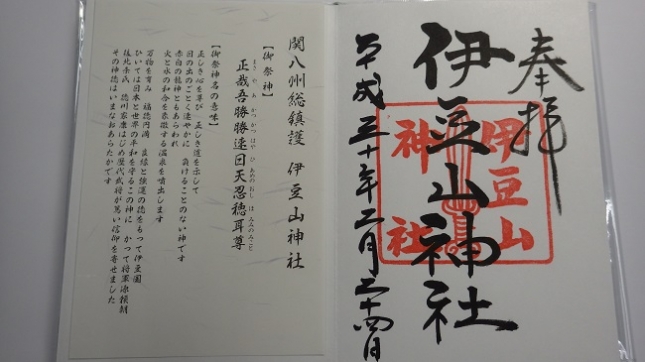 奉拝
伊豆山神社
伊豆山
神社
平成三十年二月二十四日
関八州総鎮護 伊豆山神社
【御祭神】
正哉吾勝勝速日天忍穂耳尊
まさ や あ かつ かつ はや ひ あめのおし ほ みみのみこと
【御祭神名の意味】
正しき心を尊び 正しき道を示して
日の出のごとく速やかに 負けることのない神です
赤白の龍神ともあらわれ
火と水の和合を象徴する温泉を噴出します
万物を育み 福徳円満 良縁と強運の徳をもって伊豆国
ひいては日本と世界の平和を守るこの神に かつて将軍源頼朝
後北条氏 徳川家康はじめ歴代武将が篤い信仰を寄せました
その神徳はいまなおあらたかです